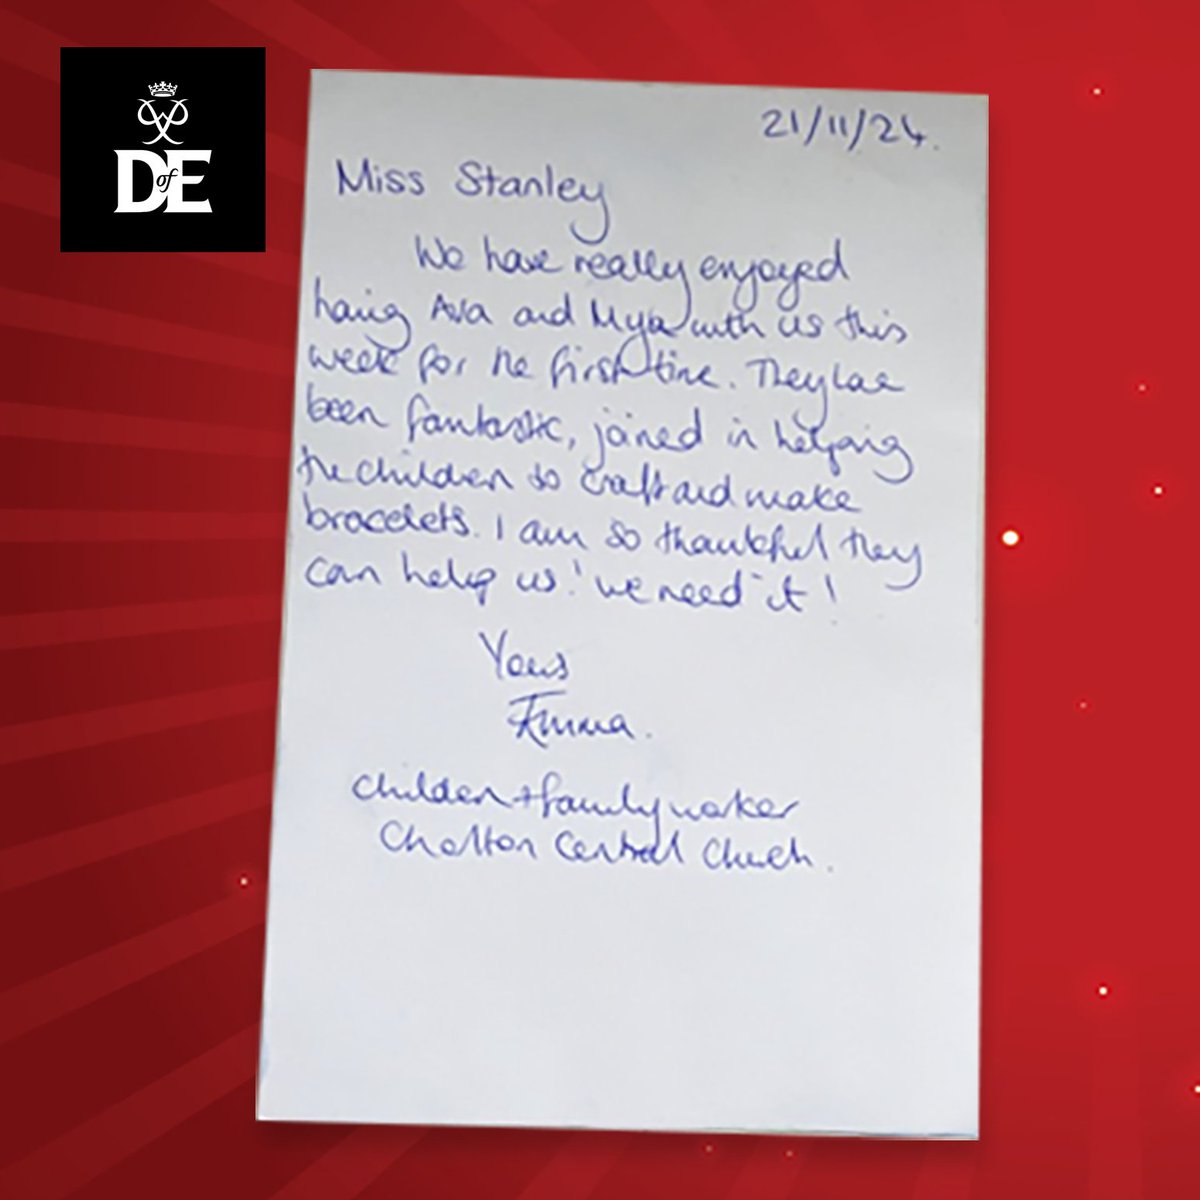 DofE
21/11/24.
Miss Stanley
We have really enjoyed
having Ava and Mya with us this
week for the first time. They have
been fantastic, joined in helping
the children to craft and make
bracelets. I am so thankful they
can help us! we need it!
Yours
Emma.
Children + family worker
Chorlton Central Church.